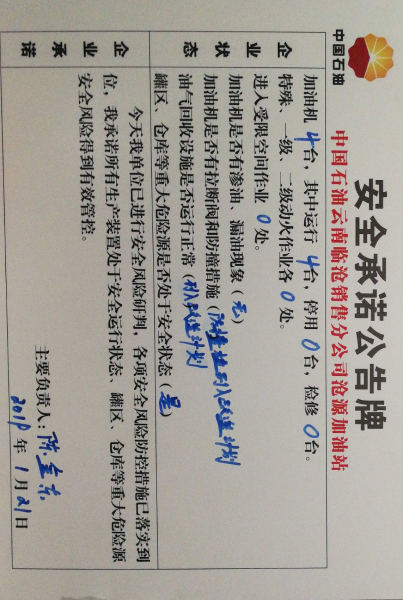 中国石油
安全承诺公告牌
中国石油云南临沧销售分公司沧源加油站
企业状态
加油机 4 台，其中运行 4 台，停用 0 台，检修 0 台。
特殊、一级、二级动火作业各 0 处。
进入受限空间作业 0 处。
加油机是否有渗油、漏油现象（无）
加油机是否有拉断阀和防撞措施（防撞措列入改造计划
油气回收设施是否运行正常（列入改造计划
罐区、仓库等重大危险源是否处于安全状态（是）
企业承诺
今天我单位已进行安全风险研判，各项安全风险防控措施已落实到
位，我承诺所有生产装置处于安全运行状态、罐区、仓库等重大危险源
安全风险得到有效管控。
主要负责人：陈
2019 年 1 月 21 日